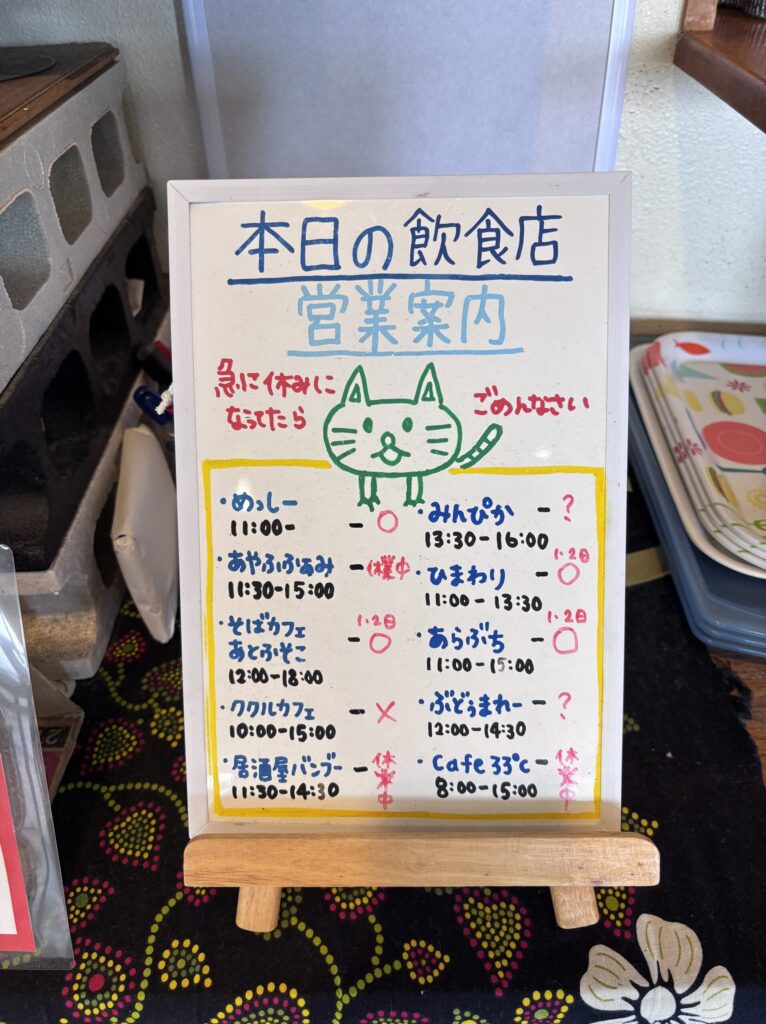 本日の飲食店
営業案内
急に休みに
なってたら
ごめんなさい
・めっしー
11:00-
-○
・あやふふぁみ
11:30-15:00
-休業中
・そばカフェ
あとふそこ
12:00-18:00
1・2日
-○
・ククルカフェ
10:00-15:00
-×
・居酒屋バンブー
11:30-14:30
-休業中
・みんぴか
13:30-16:00
-?
・ひまわり
11:00-13:30
1・2日
-○
・あらぶち
11:00-15:00
1・2日
-○
・ぶどぅまれー
12:00-14:30
-?
・Cafe 33℃
8:00-15:00
-休業中